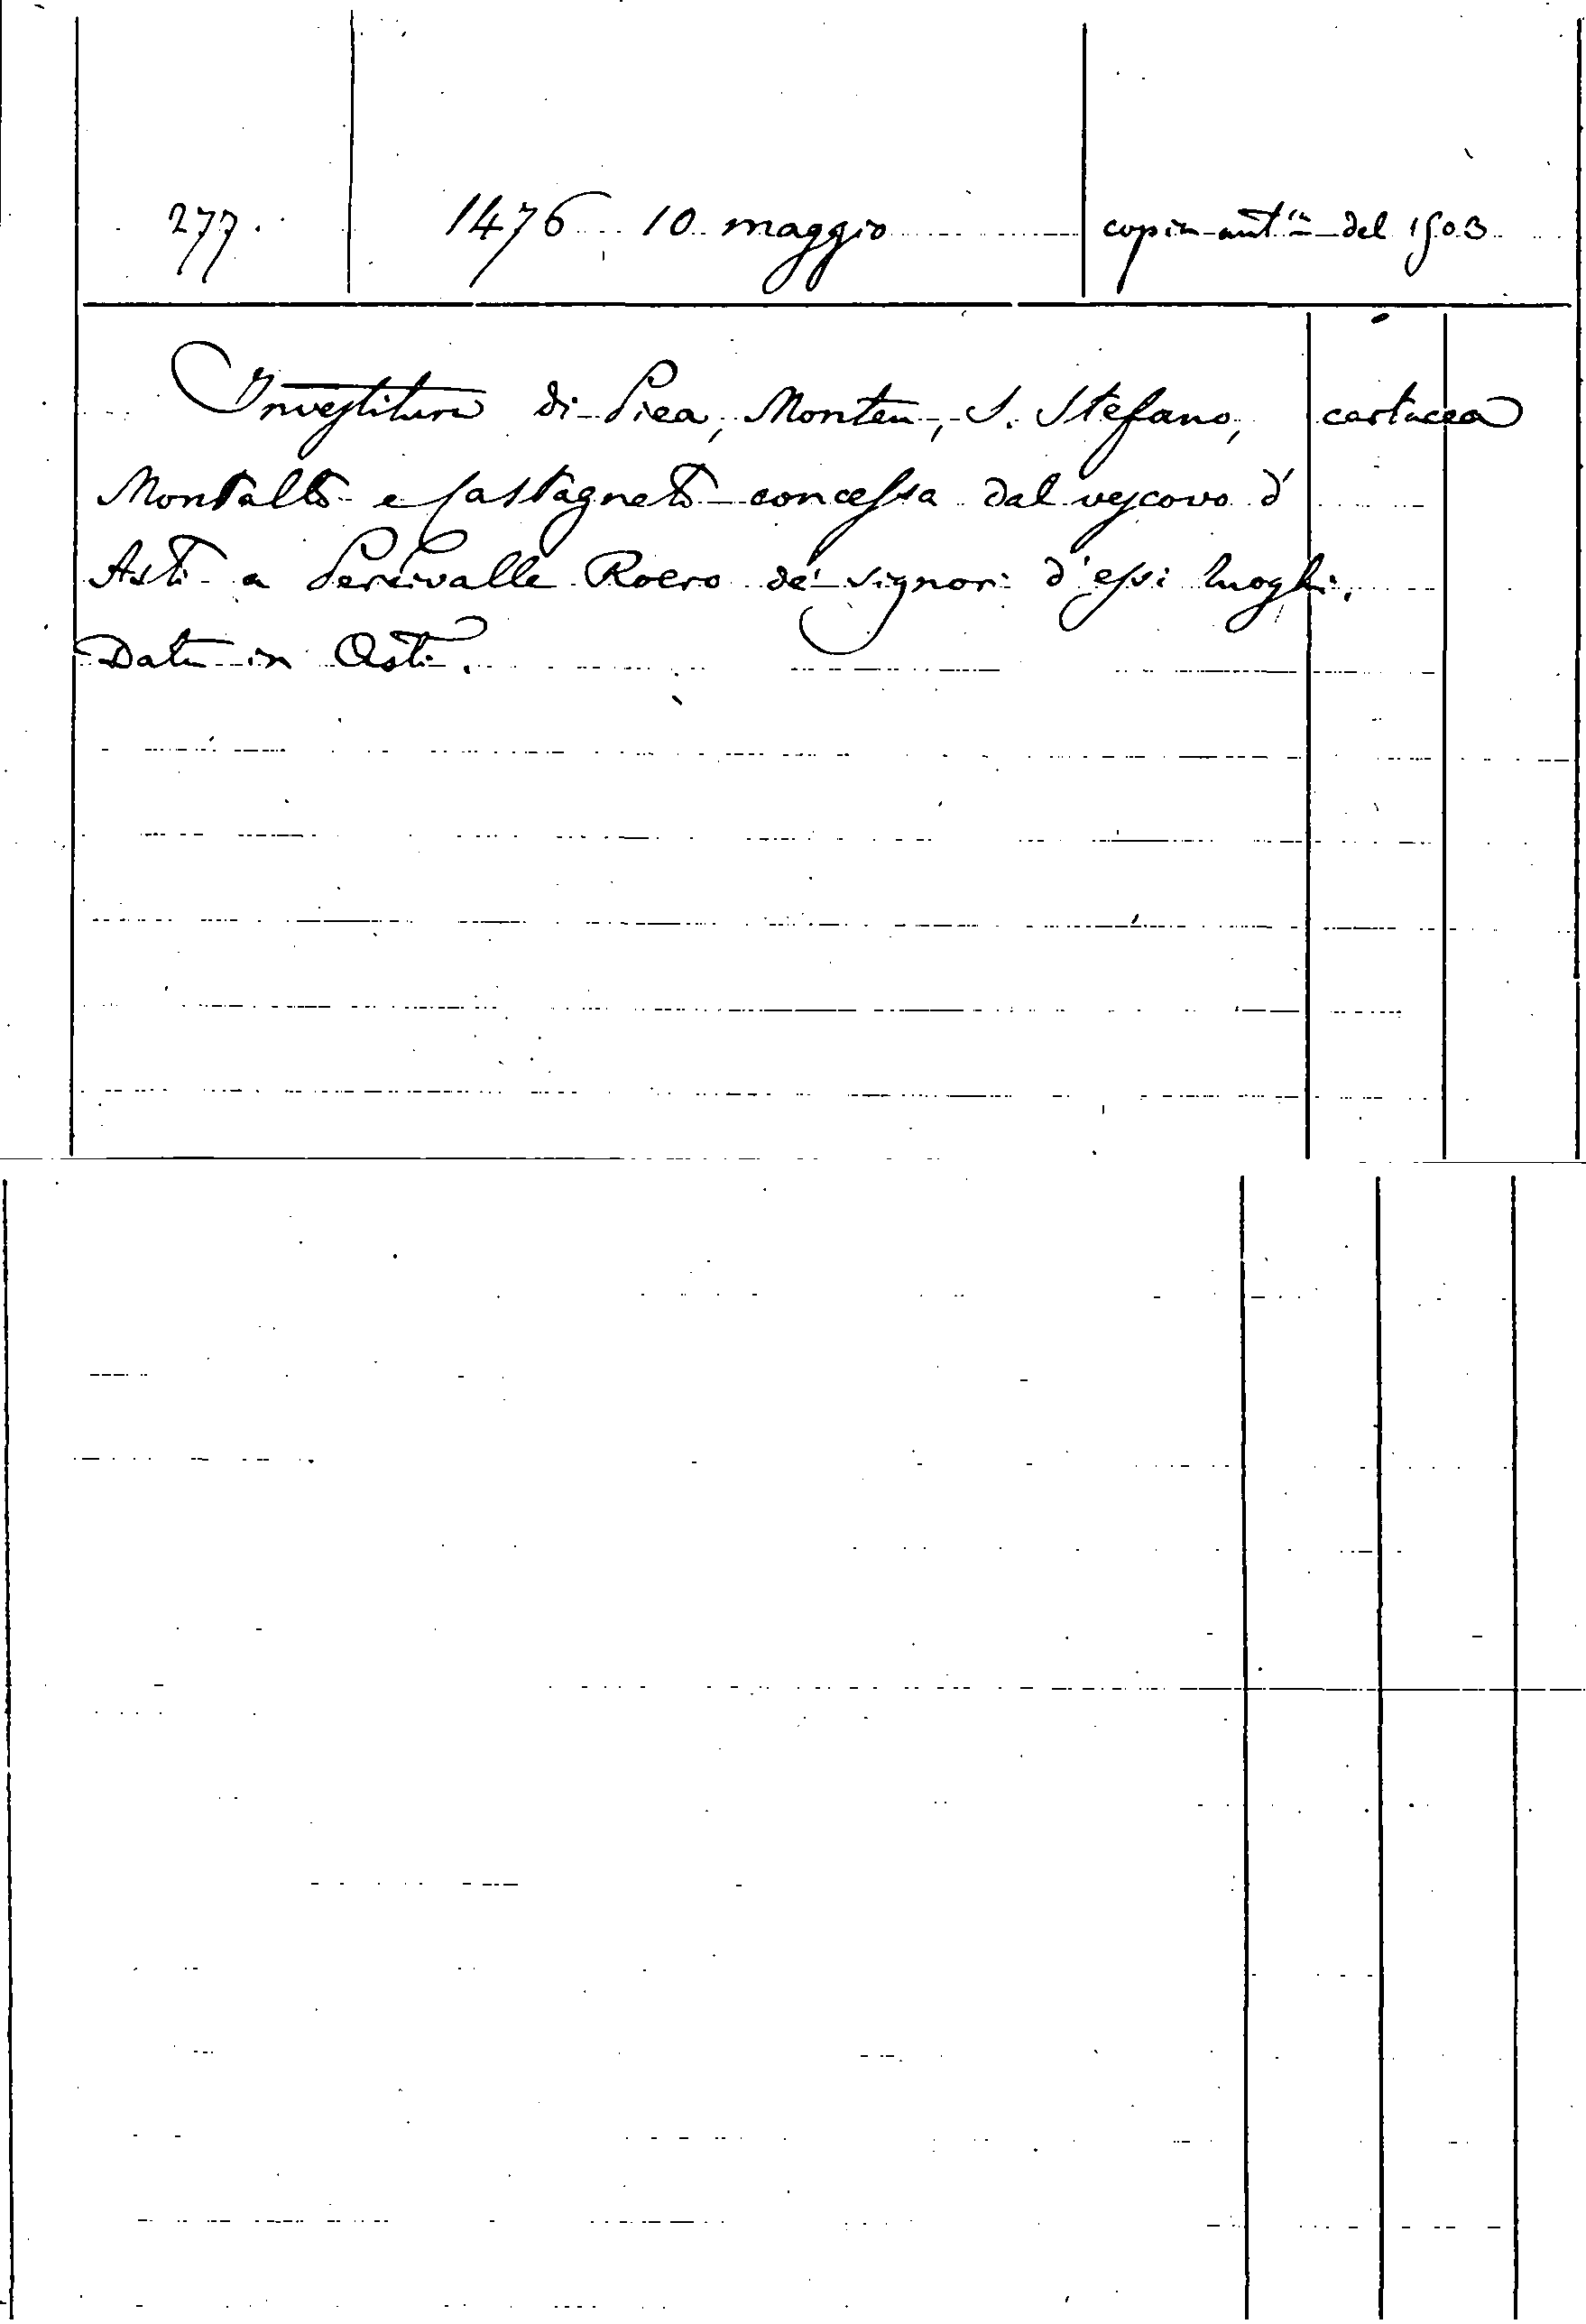 277. 1476 10 maggio copia aut.ca del 1503
Investitura di Piea, Monteu, S. Stefano, cartacea
Montalto e Castagneto concessa dal vescovo d'
Asti a Percivalle Roero de' signori d'essi luoghi.
Data in Asti.